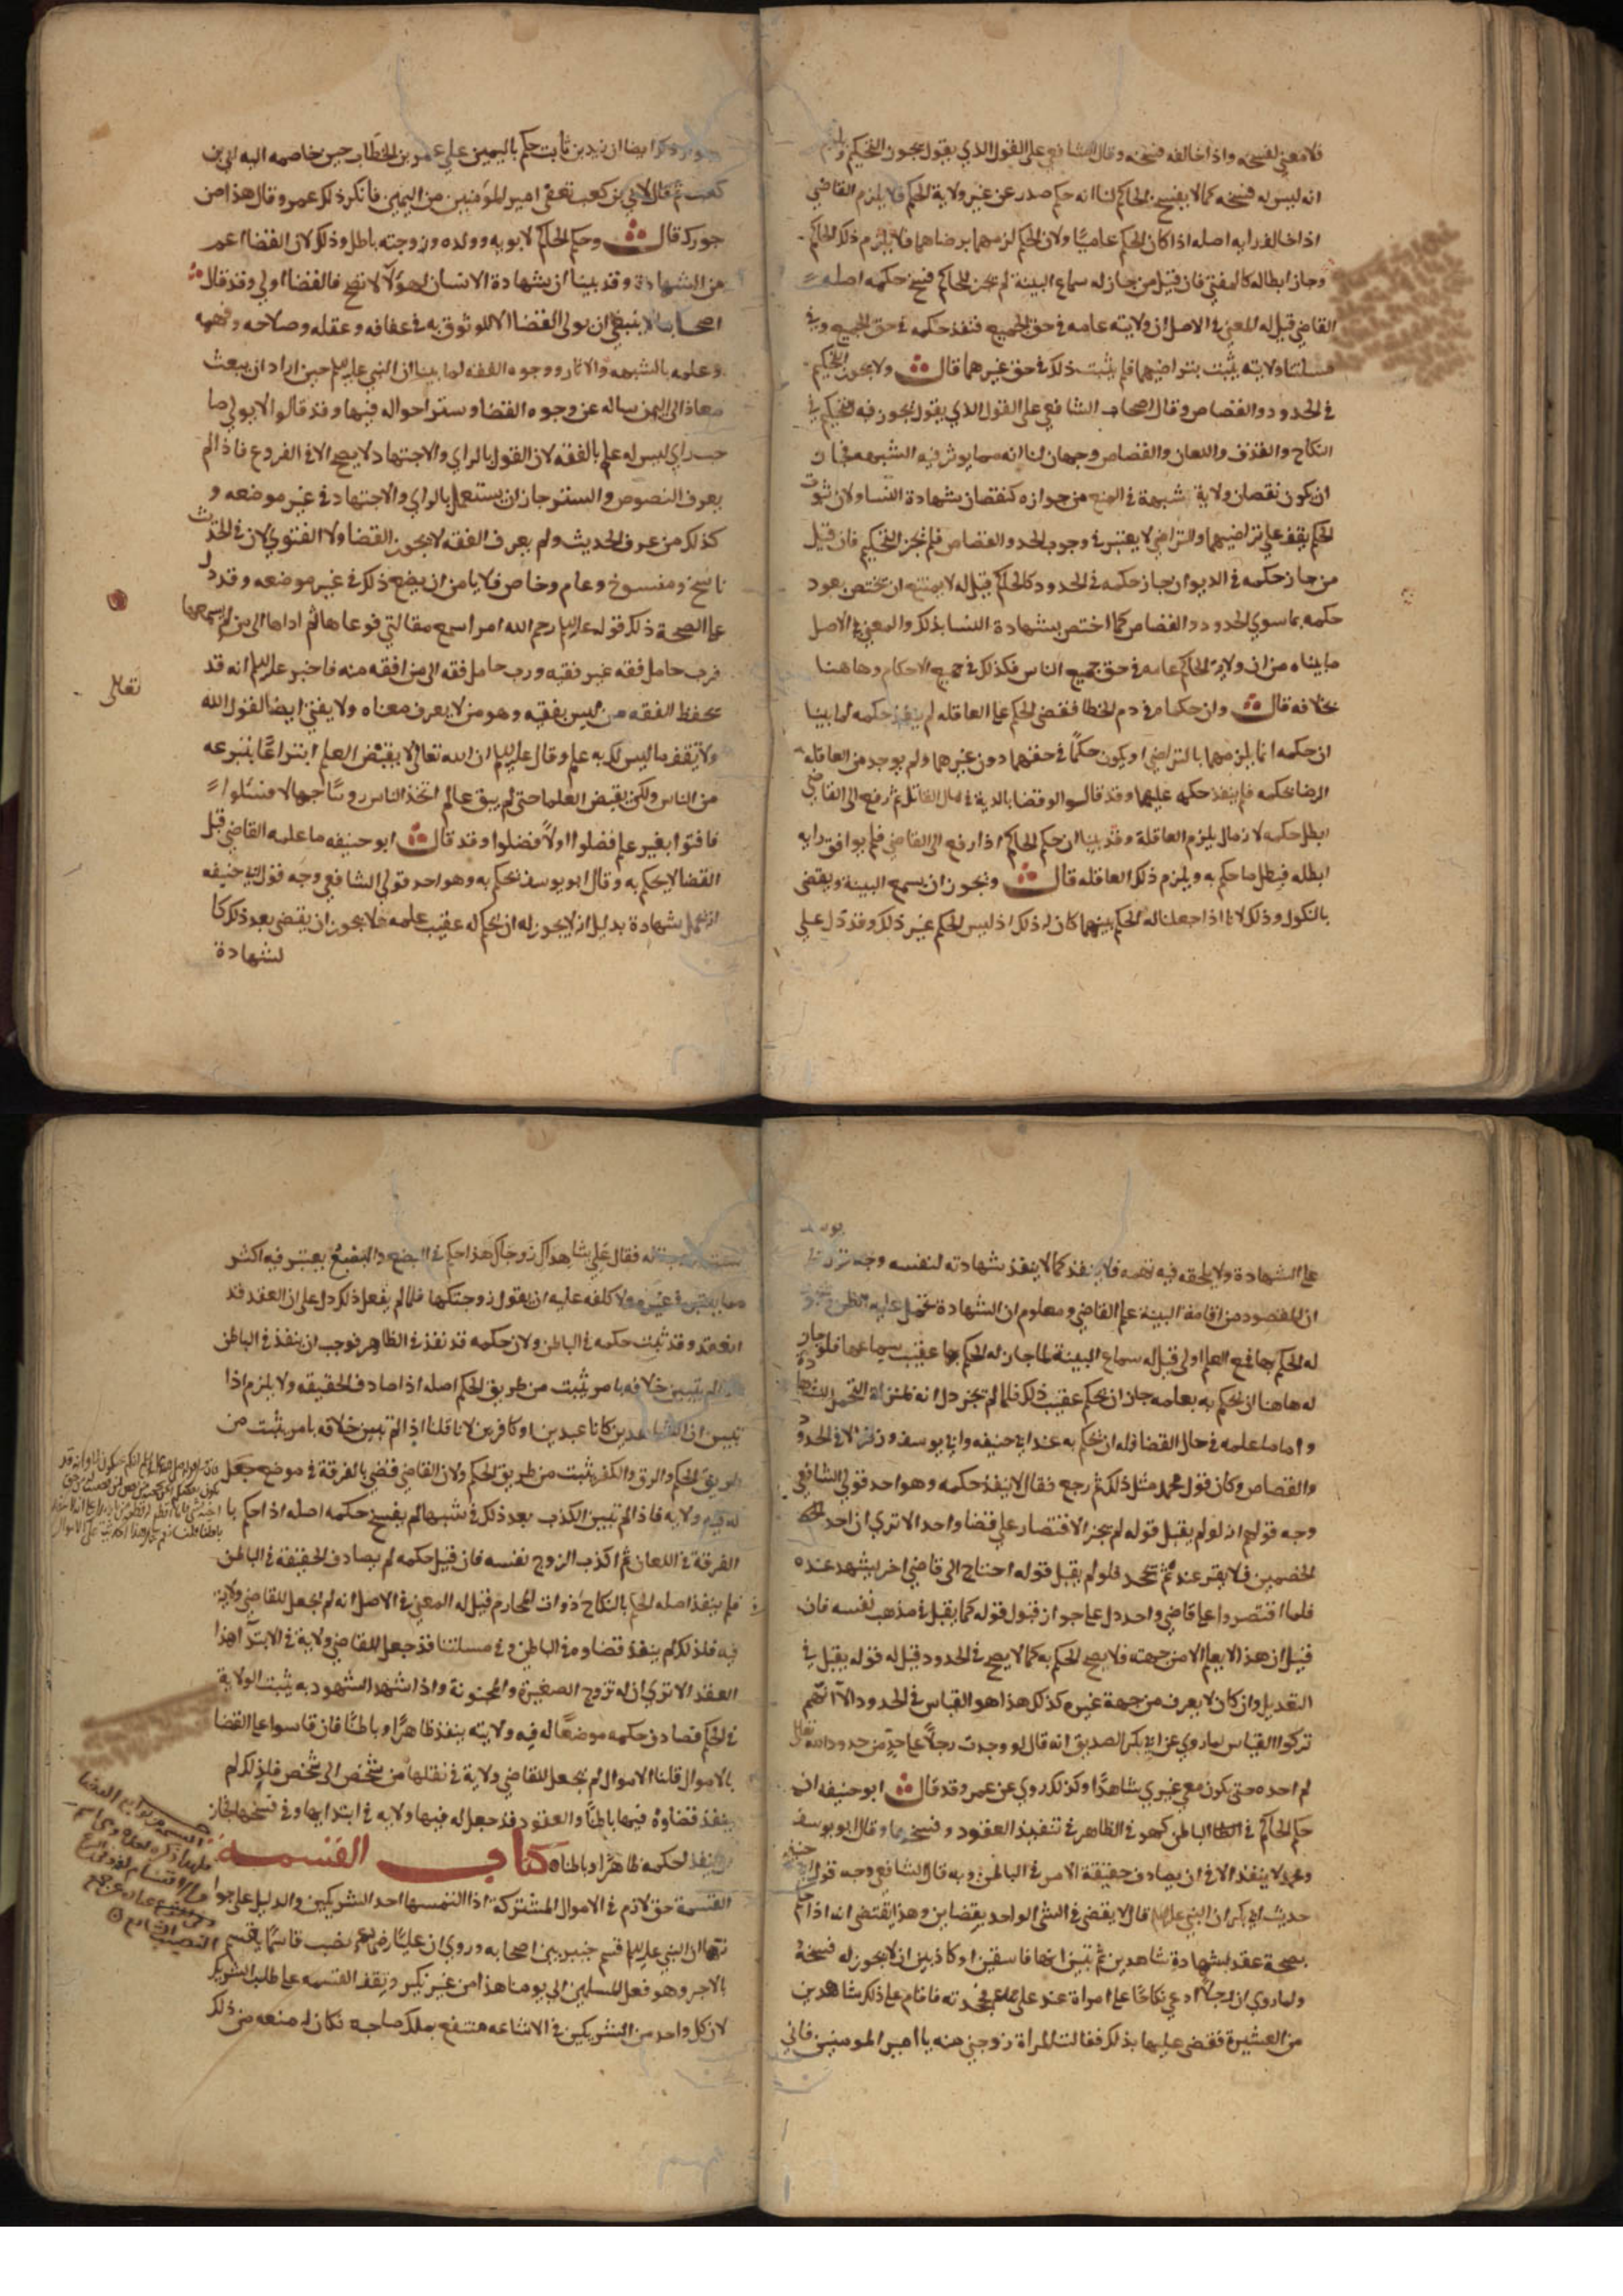 فلا معني لفسخه واذا خالفه فسخه وقال الشافعي علي القول الذي يقول يجوز التحكيم
انه ليس له فسخه كما لا يفسخ الحاكم لنا انه حكم صدر عن غير ولاية الحكم فلا يلزم القاضي
اذا خالف رايه اصله اذا كان الحكم عاميًا ولان الحكم لزمهما برضاهما فلا يلزم ذلك الحاكم
وجاز ابطاله كالمفتي فان قيل من جاز له سماع البينة لم يجز للحاكم فسخ حكمه اصله
القاضي قيل له المعني في الاصل ان ولايته عامه في حق الجميع فنفذ حكمه في حق الجميع وفي
مسلتنا ولايته يثبت بتراضيهما فلم يثبت ذلك في حق غيرهما قال ولا يجوز التحكيم
في الحدود والقصاص وقال اصحاب الشافعي علي القول الذي يقول يجوز فيه التحكيم في
النكاح والقذف واللعان والقصاص وجهان لنا انه مما يوثر فيه الشبهه فجاز
ان يكون نقصان ولاية شبهة في المنع من جوازه كنقصان شهادة النسا ولان ثبوت
الحكم يقف علي تراضيهما والتراضي لا يعتبر في وجوب الحد والقصاص فلم يجز التحكيم فان قيل
من جاز حكمه في الديوان جاز حكمه في الحدود كالحاكم قيل له لا يمتنع ان يختص بعود
حكمه بما سوي الحدود والقصاص كما اختص بشهادة النسا بذلك والمعني في الاصل
ما بيناه من ان ولاية الحاكم عامه في حق جميع الناس فكذلك في جميع الاحكام وها هنا
بخلافه قال وان حكما في دم الخطا فقضي الحكم علي العاقله لم ينفذ حكمه لما بينا
ان حكمه انما يلزمهما بالتراضي ويكون حكمًا في حقهما دون غيرهما ولم يوجد من العاقله
الرضا بحكمه فلم ينفذ حكمه عليهما وقد قالوا لو قضا بالدية في مال القاتل ثم رفع الي القاضي
ابطل حكمه لان مال يلزم العاقلة وقد بينا ان حكم الحاكم اذا رفع الي القاضي فلم يوافق رايه
ابطله فيبطل ما حكم به ويلزم ذلك العاقله قال ويجوز ان يسمع البينة ويقضي
بالنكول وذلك لانا اذا جعلنا له الحكم بينهما كان له ذلك اذ ليس الحكم غير ذلك وقد دل علي
ايضا ان زيد بن ثابت حكم باليمين علي عمر بن الخطاب حين خاصمه اليه ابي بن
كعب ثم قال لابي بن كعب تعفي امير المومنين من اليمين فانكر ذلك عمر وقال هذا من
جورك قال وحكم الحاكم لابويه وولده وزوجته باطل وذلك لان القضا اعم
من الشهادة وقد بينا ان شهادة الانسان لهولا لا تصح فالقضا اولي وقد قال
اصحابنا لا ينبغي ان يولي القضا الا الموثوق به في عفافه وعقله وصلاحه وفهمه
وعلمه بالشبهه والاثار ووجوه الفقه لما بينا ان النبي عليلم حين اراد ان يبعث
معاذا الي اليمن ساله عن وجوه القضا وستر احواله فيها وقد قالوا لا يولي
صاحب راي ليس له علم بالفقه لان القول بالراي والاجتهاد لا يصح الا في الفروع فاذا لم
يعرف النصوص والسنن جاز ان يستعمل بالراي والاجتهاد في غير موضعه و
كذلك من عرف الحديث ولم يعرف الفقه لا يجوز القضا ولا الفتوي لان في الحديث
ناسخ ومنسوخ وعام وخاص فلا يامن ان يضع ذلك في غير موضعه وقد دل
علي الصحة ذلك قوله عليلم رحم الله امرا سمع مقالتي فوعاها ثم اداها الي من لم يسمعها
فرب حامل فقه غير فقيه ورب حامل فقه الي من افقه منه فاخبر عليلم انه قد
يحفظ الفقه من ليس بفقيه وهو من لا يعرف معناه ولا يفتي ايضا لقول الله
تعالي
ولا تقف ما ليس لك به علم وقال عليلم ان الله تعالي لا يقبض العلم انتزاعًا ينتزعه
من الناس ولكن يقبض العلما حتي لم يبق عالم اتخذ الناس روسًا جهالا فسئلوا
فافتوا بغير علم فضلوا اولًا فضلوا وقد قال ابو حنيفه ما علمه القاضي قبل
القضا لا يحكم به وقال ابو يوسف يحكم به وهو احد قولي الشافعي وجه قول ابي حنيفه
شهادة بدليل انه لا يجوز له ان يحكم له عقيب علمه فلا يجوز ان يقضي بعد ذلك كا
لشهادة
علي الشهادة ولا يلحقه فيه تهمه فلا ينفذ كما لا ينفذ شهادته لنفسه وجه
ان المقصود من اقامة البينة علم القاضي ومعلوم ان الشهادة
له الحكم بها فمع العلم اولي قيل له سماع البينة لما جاز له الحكم بها عقيب سماعها فلو جاز
له هاهنا ان يحكم به بعلمه جاز ان يحكم عقيب ذلك فلما لم يجز دل انه بمنزلة التحمل للشهادة
واما ما علمه في حال القضا فله ان يحكم به عند ابي حنيفه وابي يوسف وزفر الا في الحدود
والقصاص وكان قول محمد مثل ذلك ثم رجع فقال لا ينفذ حكمه وهو احد قولي الشافعي
وجه قولهم انه لو لم يقبل قوله لم يجز الاقتصار علي قضا واحد الا تري ان احد
الخصمين فلا يقر عنده ثم يجحد فلو لم يقبل قوله احتاج الي قاضي اخر يشهد عنده
فلما اقتصروا علي قاضي واحد دل علي جواز قبول قوله كما يقبل في مذهب نفسه فان
قيل ان هذا لا يعلم الا من جهته فلا يصح الحكم به كما لا يصح في الحدود قيل له قوله يقبل في
التعديل وان كان لا يعرف من جهة غيره كذلك هذا هو القياس في الحدود الا انهم
تركوا القياس لما روي عن ابي بكر الصديق انه قال لو وجدت رجلًا علي حد من حدود الله تعالي
لم احده حتي يكون معي غيري شاهدًا وكذلك روي عن عمر وقد قال ابو حنيفه ان
حكم الحاكم في الباطن كهو في الظاهر في تنفيذ العقود وفسخها وقال ابو يوسف
ومحمد لا ينفذ الا في ان يصادف حقيقة الامر في الباطن وبه قال الشافعي وجه قول ابي حنيفه
حديث ابي بكر ان النبي عليلم قال لا يقضي في الشي الواحد بقضاين وهذا يقتضي انه اذا حكم
بصحة عقد بشهادة شاهدين ثم تبين انهما فاسقين او كاذبين انه لا يجوز له فسخه
ولما روي ان رجلًا ادعي نكاحًا علي امراة عند علي فجحدته فاقام علي ذلك شاهدين
من العشيرة فقضي عليها بذلك فقالت المراة زوجني منه يا امير المومنين فاني
فقال علي شاهداك زوجاك هذا حكم في البضع والبضع يعتبر فيه اكثر
مما يعتبر في غيره ولا كلفه عليه ان يقول زوجتكها فلما لم يفعل ذلك دل علي ان العقد قد
انعقد وقد ثبت حكمه في الباطن ولان حكمه قد نفذ في الظاهر فوجب ان ينفذ في الباطن
لم يتبين خلافه بامر يثبت من طريق الحكم اصله اذا صادف الحقيقه ولا يلزم اذا
تبين ان الشاهدين كانا عبدين او كافرين لانا قلنا اذا لم تبين خلافه بامر يثبت من
طريق الحكم والرق والكفر يثبت من طريق الحكم ولان القاضي قضي بالفرقة في موضع جعل
له فيه ولايه فاذا لم تبين الكذب بعد ذلك في شبهها لم يفسخ حكمه اصله اذا حكم با
الفرقة في اللعان ثم اكذب الزوج نفسه فان قيل حكمه لم يصادف الحقيقة في الباطن
فلم ينفذ اصله الحكم بالنكاح ذوات المحارم قيل له المعني في الاصل انه لم يجعل للقاضي ولاية
فيه فلذلك لم ينفذ قضاوه في الباطن وفي مسلتنا قد جعل للقاضي ولاية في الابتدا هذا
العقد الا تري ان له تزوج الصغيرة والمجنونة واذا شهد الشهود به يثبت الولاية
في الحكم فصادف حكمه موضعًا له فيه ولايته ينفذ ظاهرًا وباطنًا فان قاسوا علي القضا
بالاموال قلنا الاموال لم يجعل للقاضي ولاية في نقلها من شخص الي شخص فلذلك لم
ينفذ قضاوه فيها باطنًا والعقود قد جعل له فيها ولايه في ابتدايها وفي فسخها فجاز
ان ينفذ لحكمه ظاهرًا وباطنا كتاب القسمه
القسمة حق لازم في الاموال المشتركة اذا التمسها احد الشريكين والدليل علي جوا
زها ان النبي عليلم قسم خيبر بين اصحابه وروي ان عليًا نصب قاسمًا يقسم
بالاجر وهو فعل المسلمين الي يومنا هذا من غير نكير ويقف القسمه علي طلب الشريك
لان كل واحد من الشريكين في الاشاعه منتفع بملك صاحبه فكان له منعه من ذلك